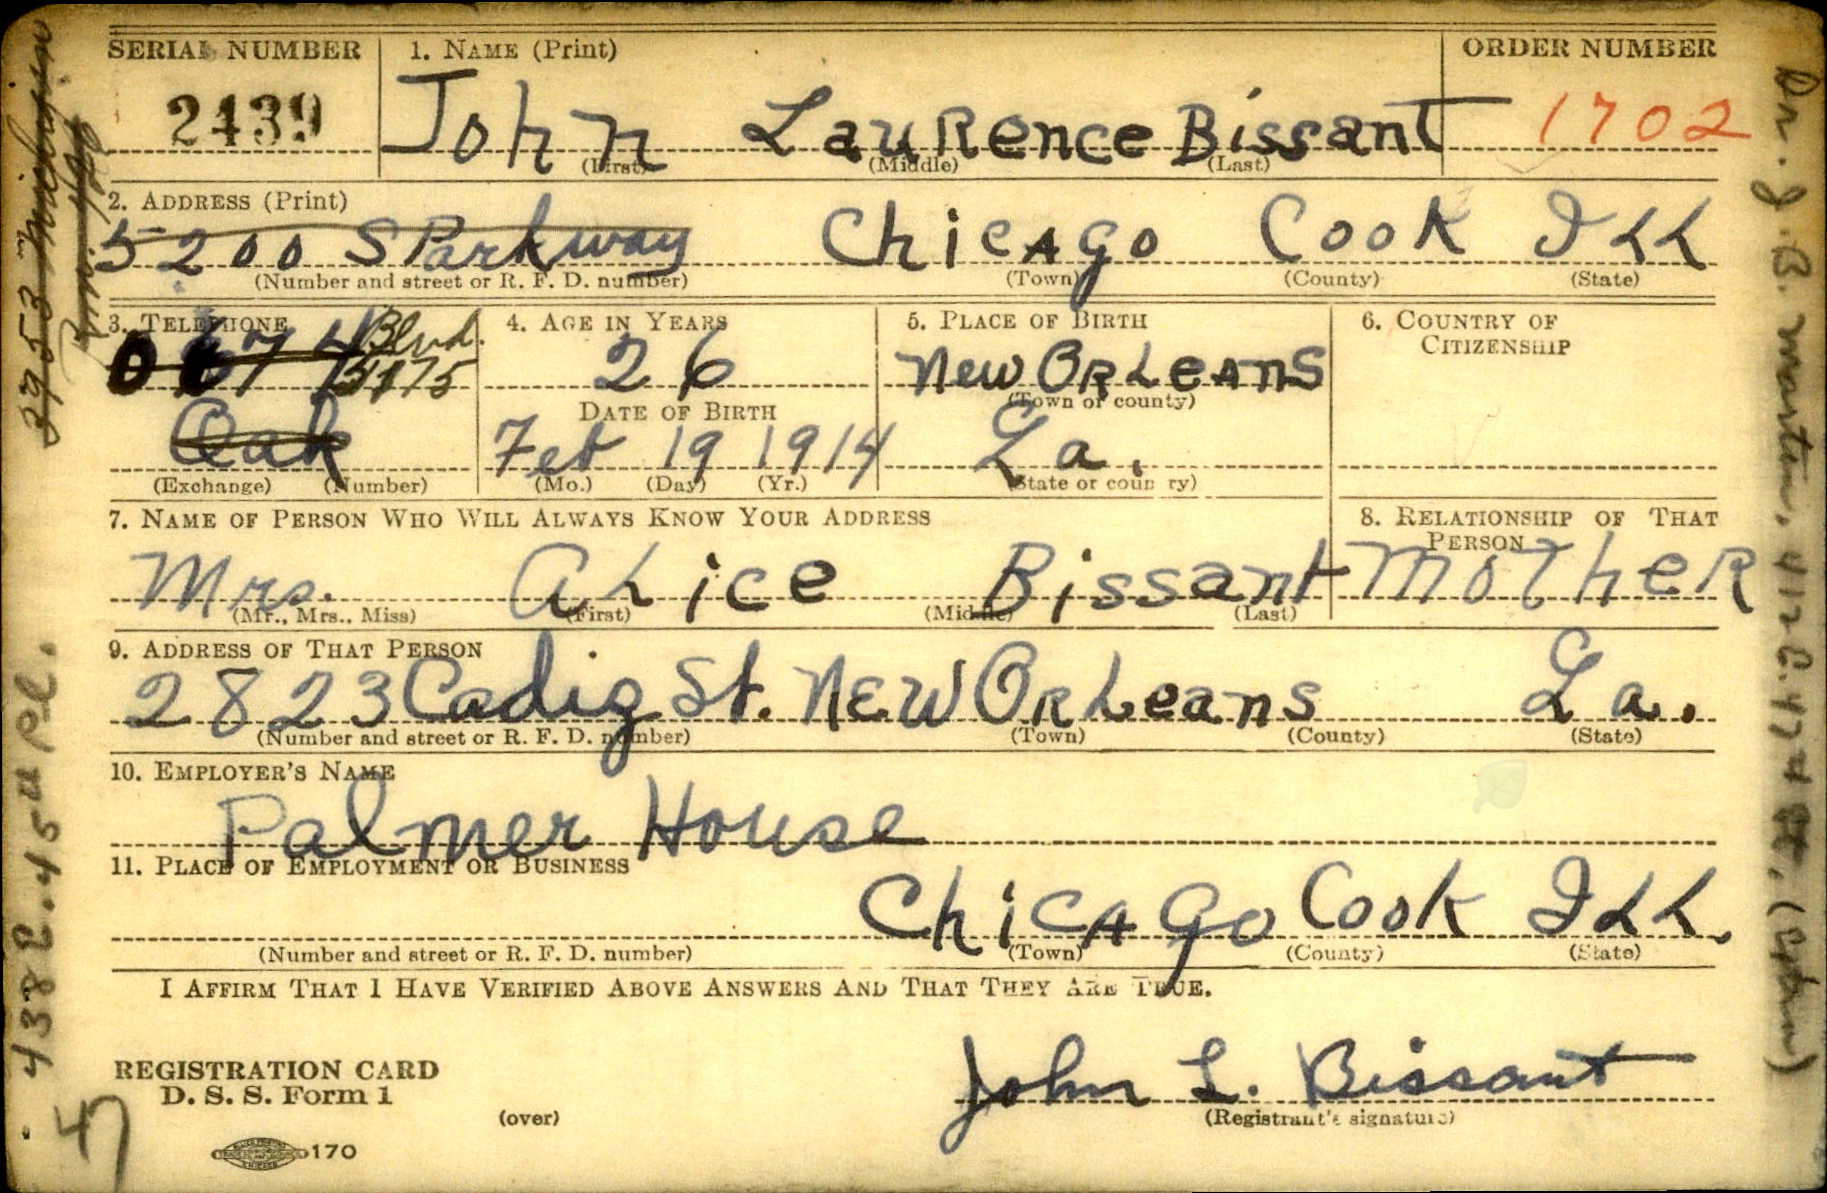 SERIAL NUMBER
1. NAME (Print)
ORDER NUMBER
2439
John Laurence Bissant
1702
(First) (Middle) (Last)
2. ADDRESS (Print)
5200 S Parkway Chicago Cook Ill
(Number and street or R. F. D. number) (Town) (County) (State)
3. TELEPHONE
Blvd.
5175
Oak
(Exchange) (Number)
4. AGE IN YEARS
26
DATE OF BIRTH
Feb 19 1914
(Mo.) (Day) (Yr.)
5. PLACE OF BIRTH
New Orleans
(Town or county)
La.
(State or country)
6. COUNTRY OF
CITIZENSHIP
7. NAME OF PERSON WHO WILL ALWAYS KNOW YOUR ADDRESS
8. RELATIONSHIP OF THAT
PERSON
Mrs. Alice Bissant Mother
(Mr., Mrs., Miss) (First) (Middle) (Last)
9. ADDRESS OF THAT PERSON
2823 Cadiz St. New Orleans La.
(Number and street or R. F. D. number) (Town) (County) (State)
10. EMPLOYER'S NAME
Palmer House
11. PLACE OF EMPLOYMENT OR BUSINESS
Chicago Cook Ill.
(Number and street or R. F. D. number) (Town) (County) (State)
I AFFIRM THAT I HAVE VERIFIED ABOVE ANSWERS AND THAT THEY ARE TRUE.
REGISTRATION CARD
D. S. S. Form 1
(over)
170
John L. Bissant
(Registrant's signature)
3953 Michigan
438 E. 45th Pl.
Dr. J. B. Martin, 412 E. 47th St.